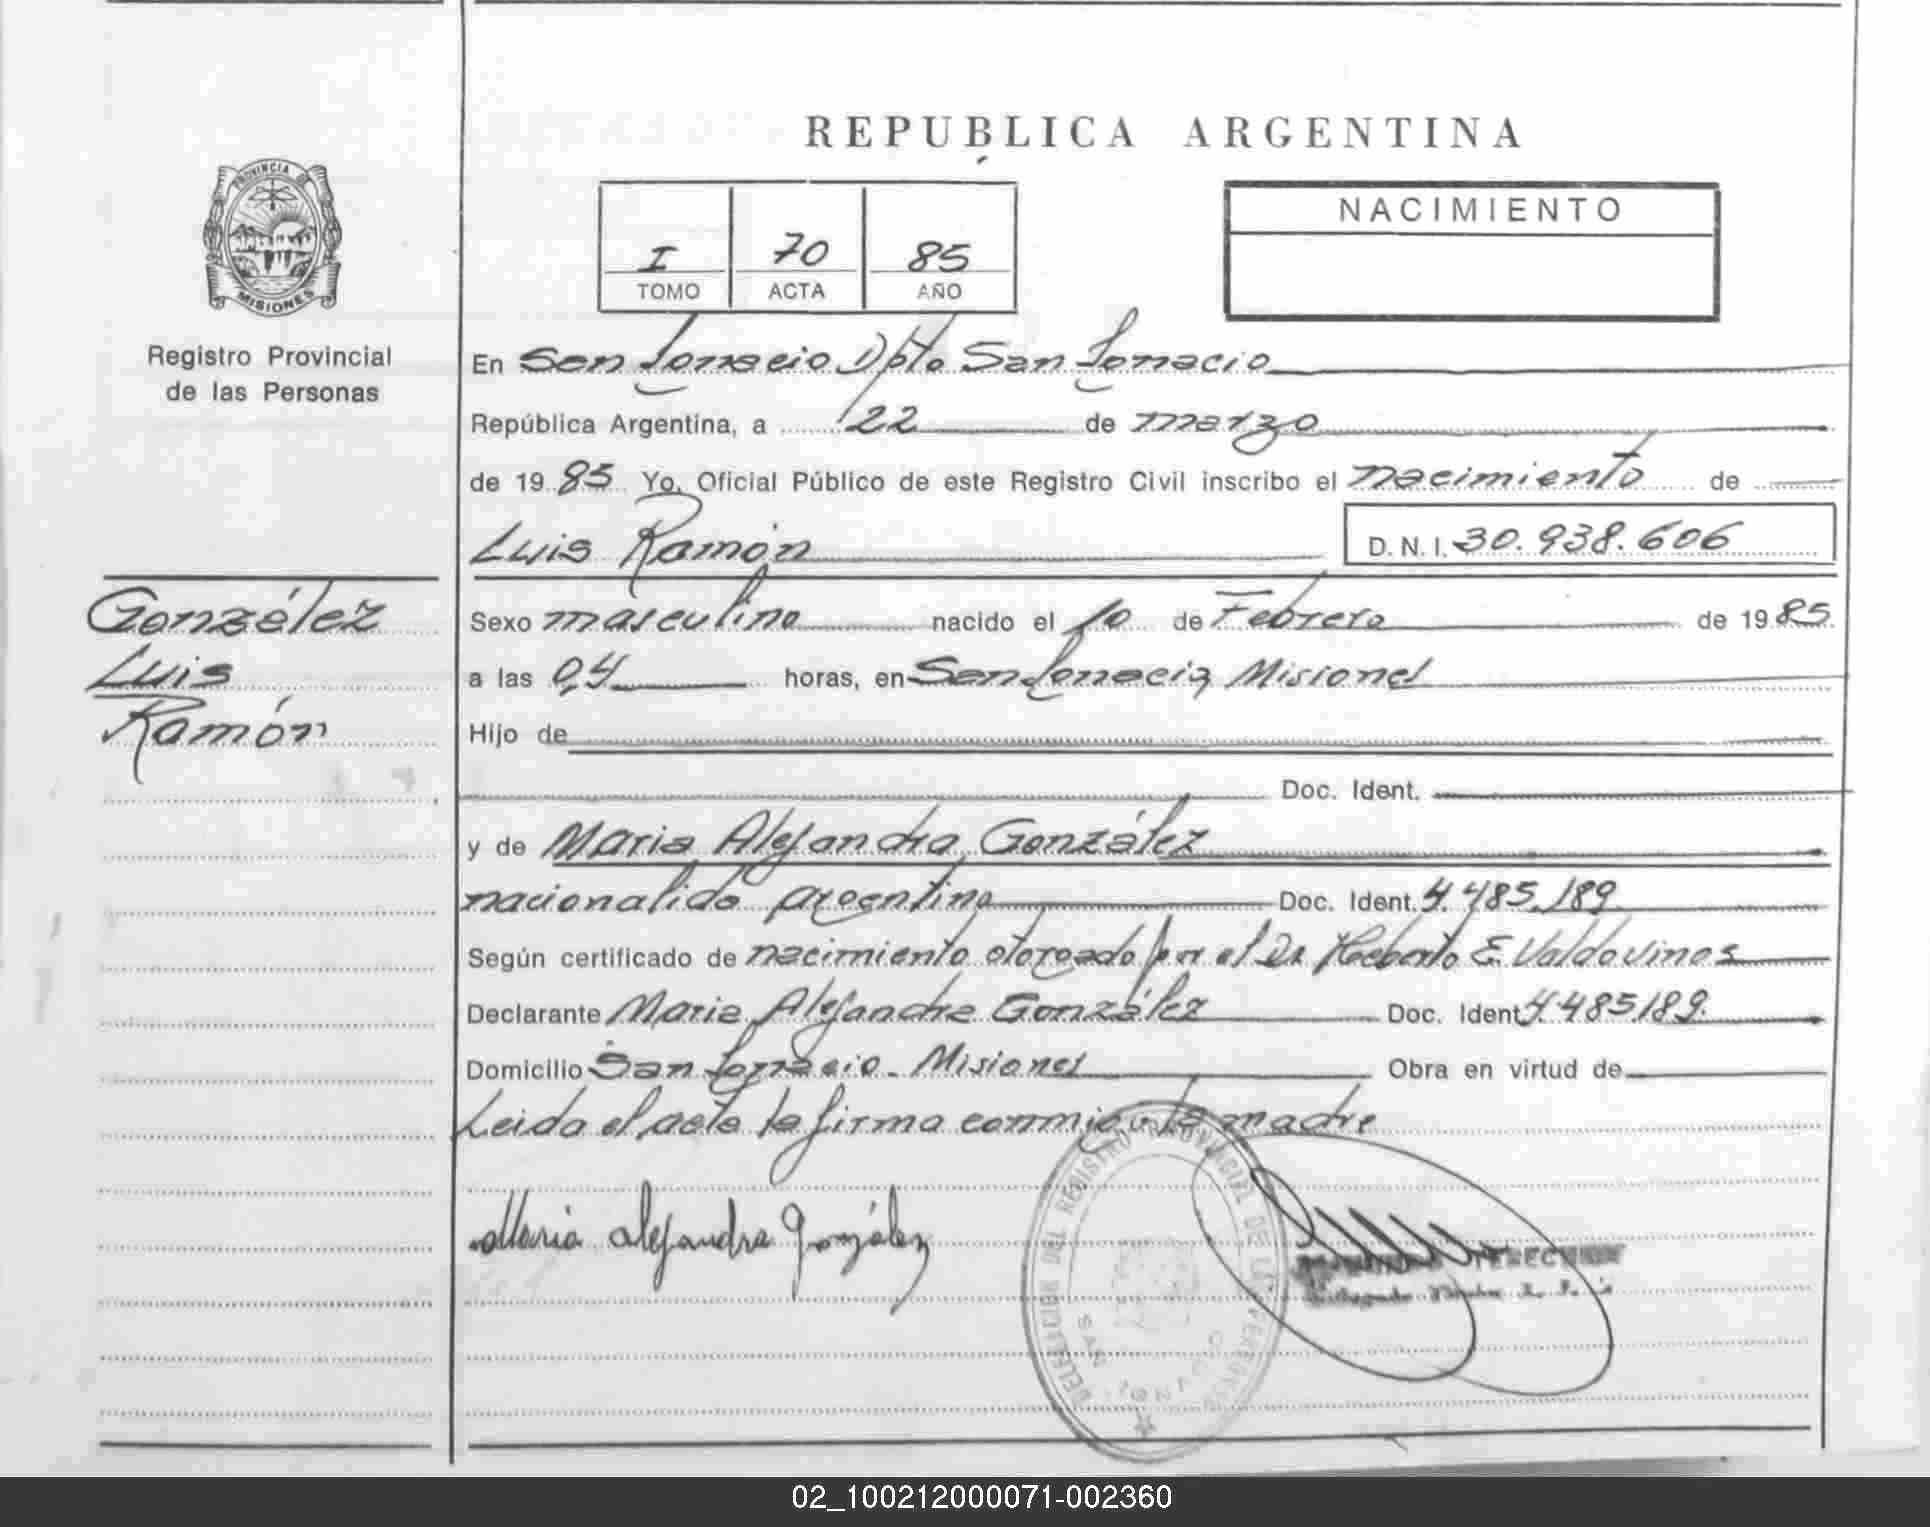 REPUBLICA ARGENTINA
PROVINCIA DE
MISIONES
Registro Provincial
de las Personas
I 70 85
TOMO ACTA AÑO
NACIMIENTO
En San Ignacio Dpto San Ignacio
República Argentina, a 22 de marzo
de 1985 Yo, Oficial Público de este Registro Civil inscribo el nacimiento de
Luis Ramón D. N. I. 30.938.606
González
Luis
Ramón
Sexo masculino nacido el 10 de Febrero de 1985
a las 04 horas, en San Ignacio, Misiones
Hijo de
Doc. Ident.
y de Maria Alejandra González
nacionalida argentina Doc. Ident. 4.485.189
Según certificado de nacimiento otorgado por el Dr Heberto E. Valdovinos
Declarante Maria Alejandra González Doc. Ident 4.485189.
Domicilio San Ignacio - Misiones Obra en virtud de
Leida el acta la firma conmigo la madre
Maria Alejandra González
DELEGACION DEL REGISTRO PROVINCIAL DE LAS PERSONAS
SAN IGNACIO
02_100212000071-002360